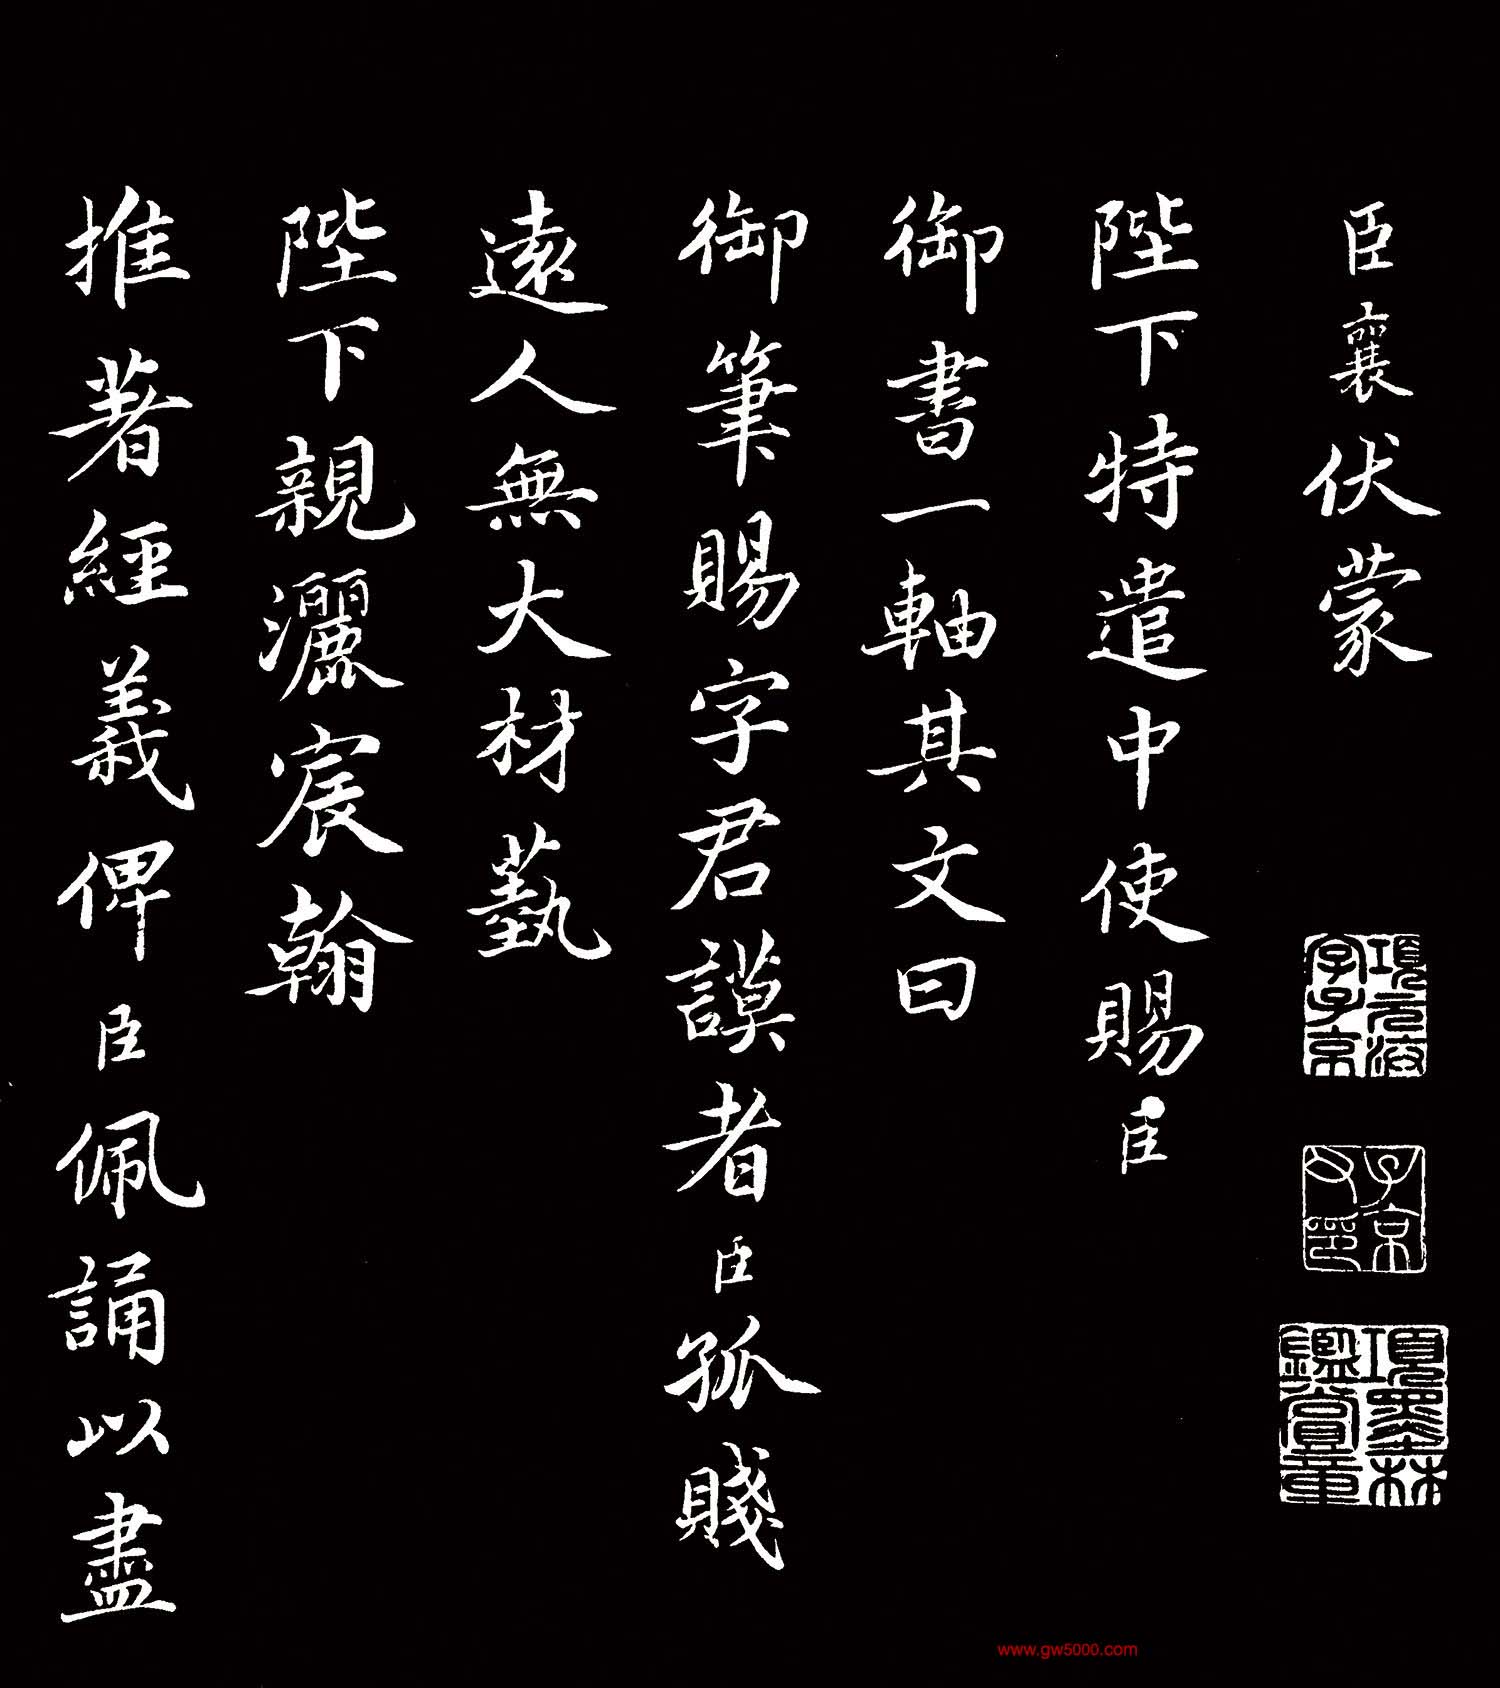 臣襄伏蒙
陛下特遣中使賜臣
御書一軸其文曰
御筆賜字君謨者臣孤賤
遠人無大材藝
陛下親灑宸翰
推著經義俾臣佩誦以盡
項元汴字子京
子京父印
項墨林鑑賞章
www.gw5000.com